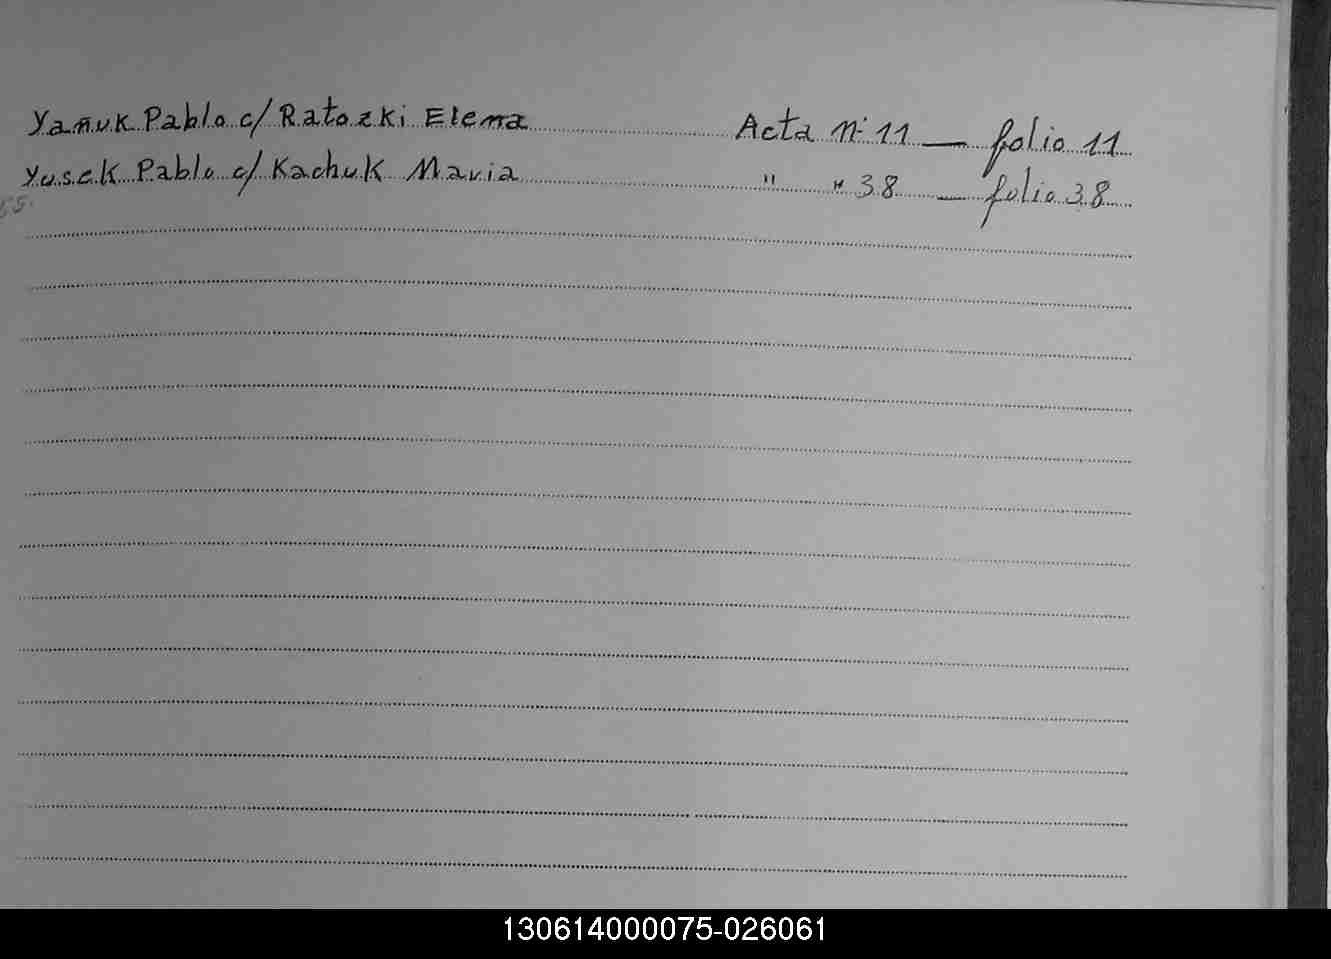 Yañuk Pablo c/ Ratozki Elena Acta nº 11 — folio 11
Yusek Pablo c/ Kachuk Maria " " 38 — folio 38
55.
130614000075-026061